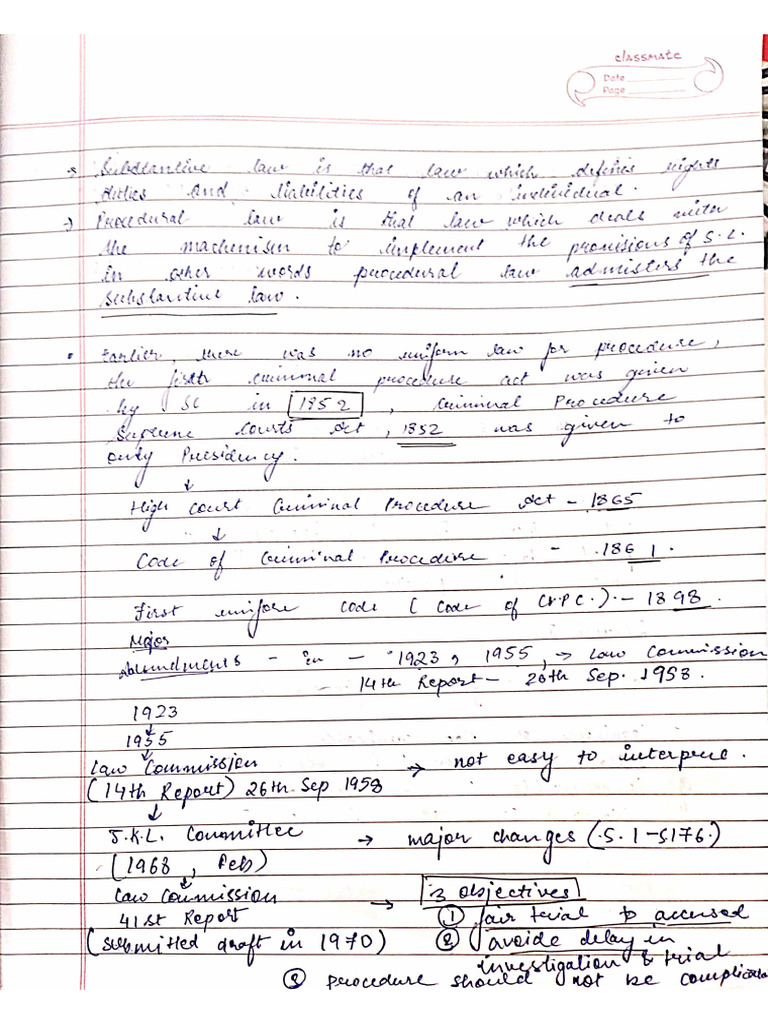 classmate
Date
Page
→ Substantive law is that law which defines rights
duties and liabilities of an individual.
→ Procedural law is that law which deals with
the machenism to implement the provisions of S.L.
in other words procedural law admisters the
substantive law.
• Earlier, there was no uniform law for procedure,
the first criminal procedure act was given
by SC in 1852, Criminal Procedure
Supreme Courts Act, 1852 was given to
only Presidency.
↓
High court Criminal Procedure Act - 1865
↓
Code of Criminal Procedure - 1861.
First uniform code (Code of Cr.P.C.) - 1898.
Major
Amendments - in - 1923, 1955, → Law Commission
14th Report - 26th Sep. 1958.
1923
↓
1955
↓
Law Commission → not easy to interpret.
(14th Report) 26th Sep 1958
↓
J.K.L. Committee → major changes (S.1-S176.)
(1968, Feb)
↓
Law Commission → 3 objectives
41st Report ① fair trial to accused
(submitted draft in 1970) ② avoide delay in
investigation & trial
③ procedure should not be complicated